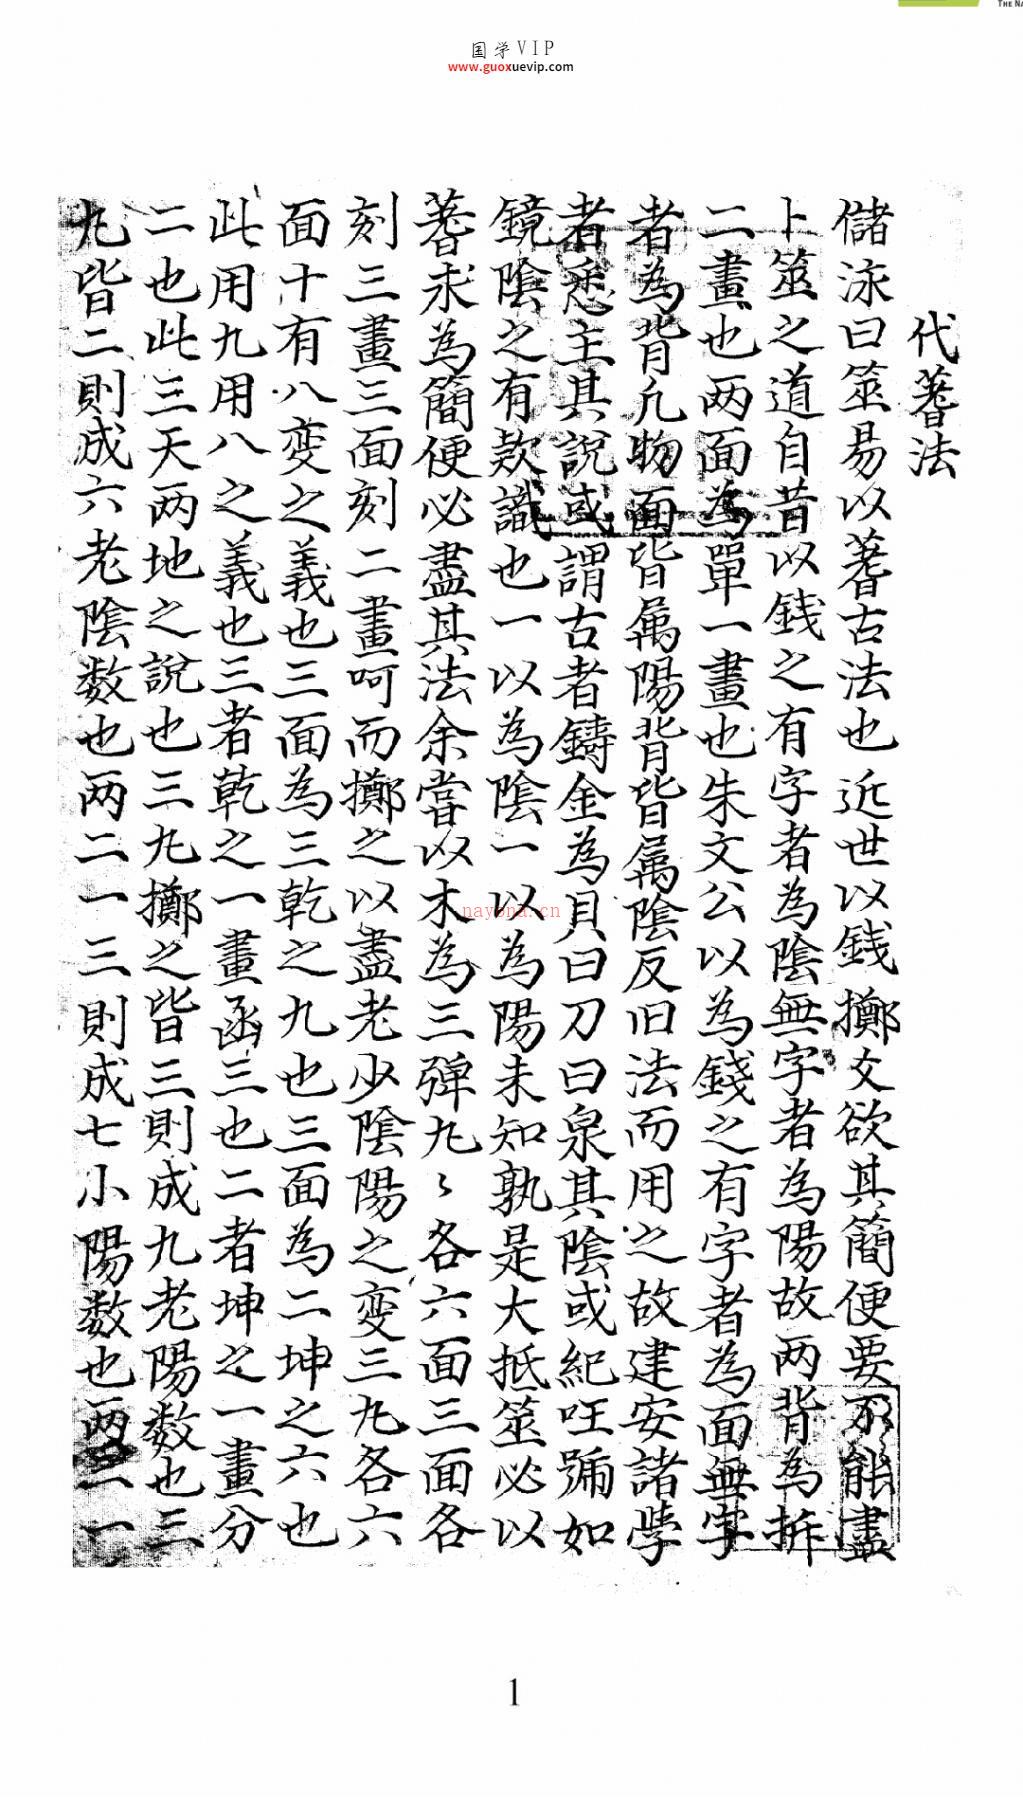 THE NA
国学VIP
www.guoxuevip.com
代蓍法
儲泳曰筮易以蓍古法也近世以錢擲爻欲其簡便要不能盡
卜筮之道自昔以錢之有字者為陰無字者為陽故两背為拆
二畫也两面為單一畫也朱文公以為錢之有字者為面無字
者為背凡物面皆属陽背皆属陰反旧法而用之故建安諸學
者悉主其說或謂古者鑄金為貝曰刀曰泉其陰或紀囯號如
鏡陰之有款識也一以為陰一以為陽未知孰是大抵筮必以
蓍求為簡便必盡其法余嘗以木為三彈丸〻各六面三面各
刻三畫三面刻二畫呵而擲之以盡老少陰陽之变三丸各六
面十有八变之義也三面為三乾之九也三面為二坤之六也
此用九用八之義也三者乾之一畫函三也二者坤之一畫分
二也此三天两地之說也三丸擲之皆三則成九老陽数也三
丸皆二則成六老陰数也两二一三則成七小陽数也两三一
nayona.cn
1